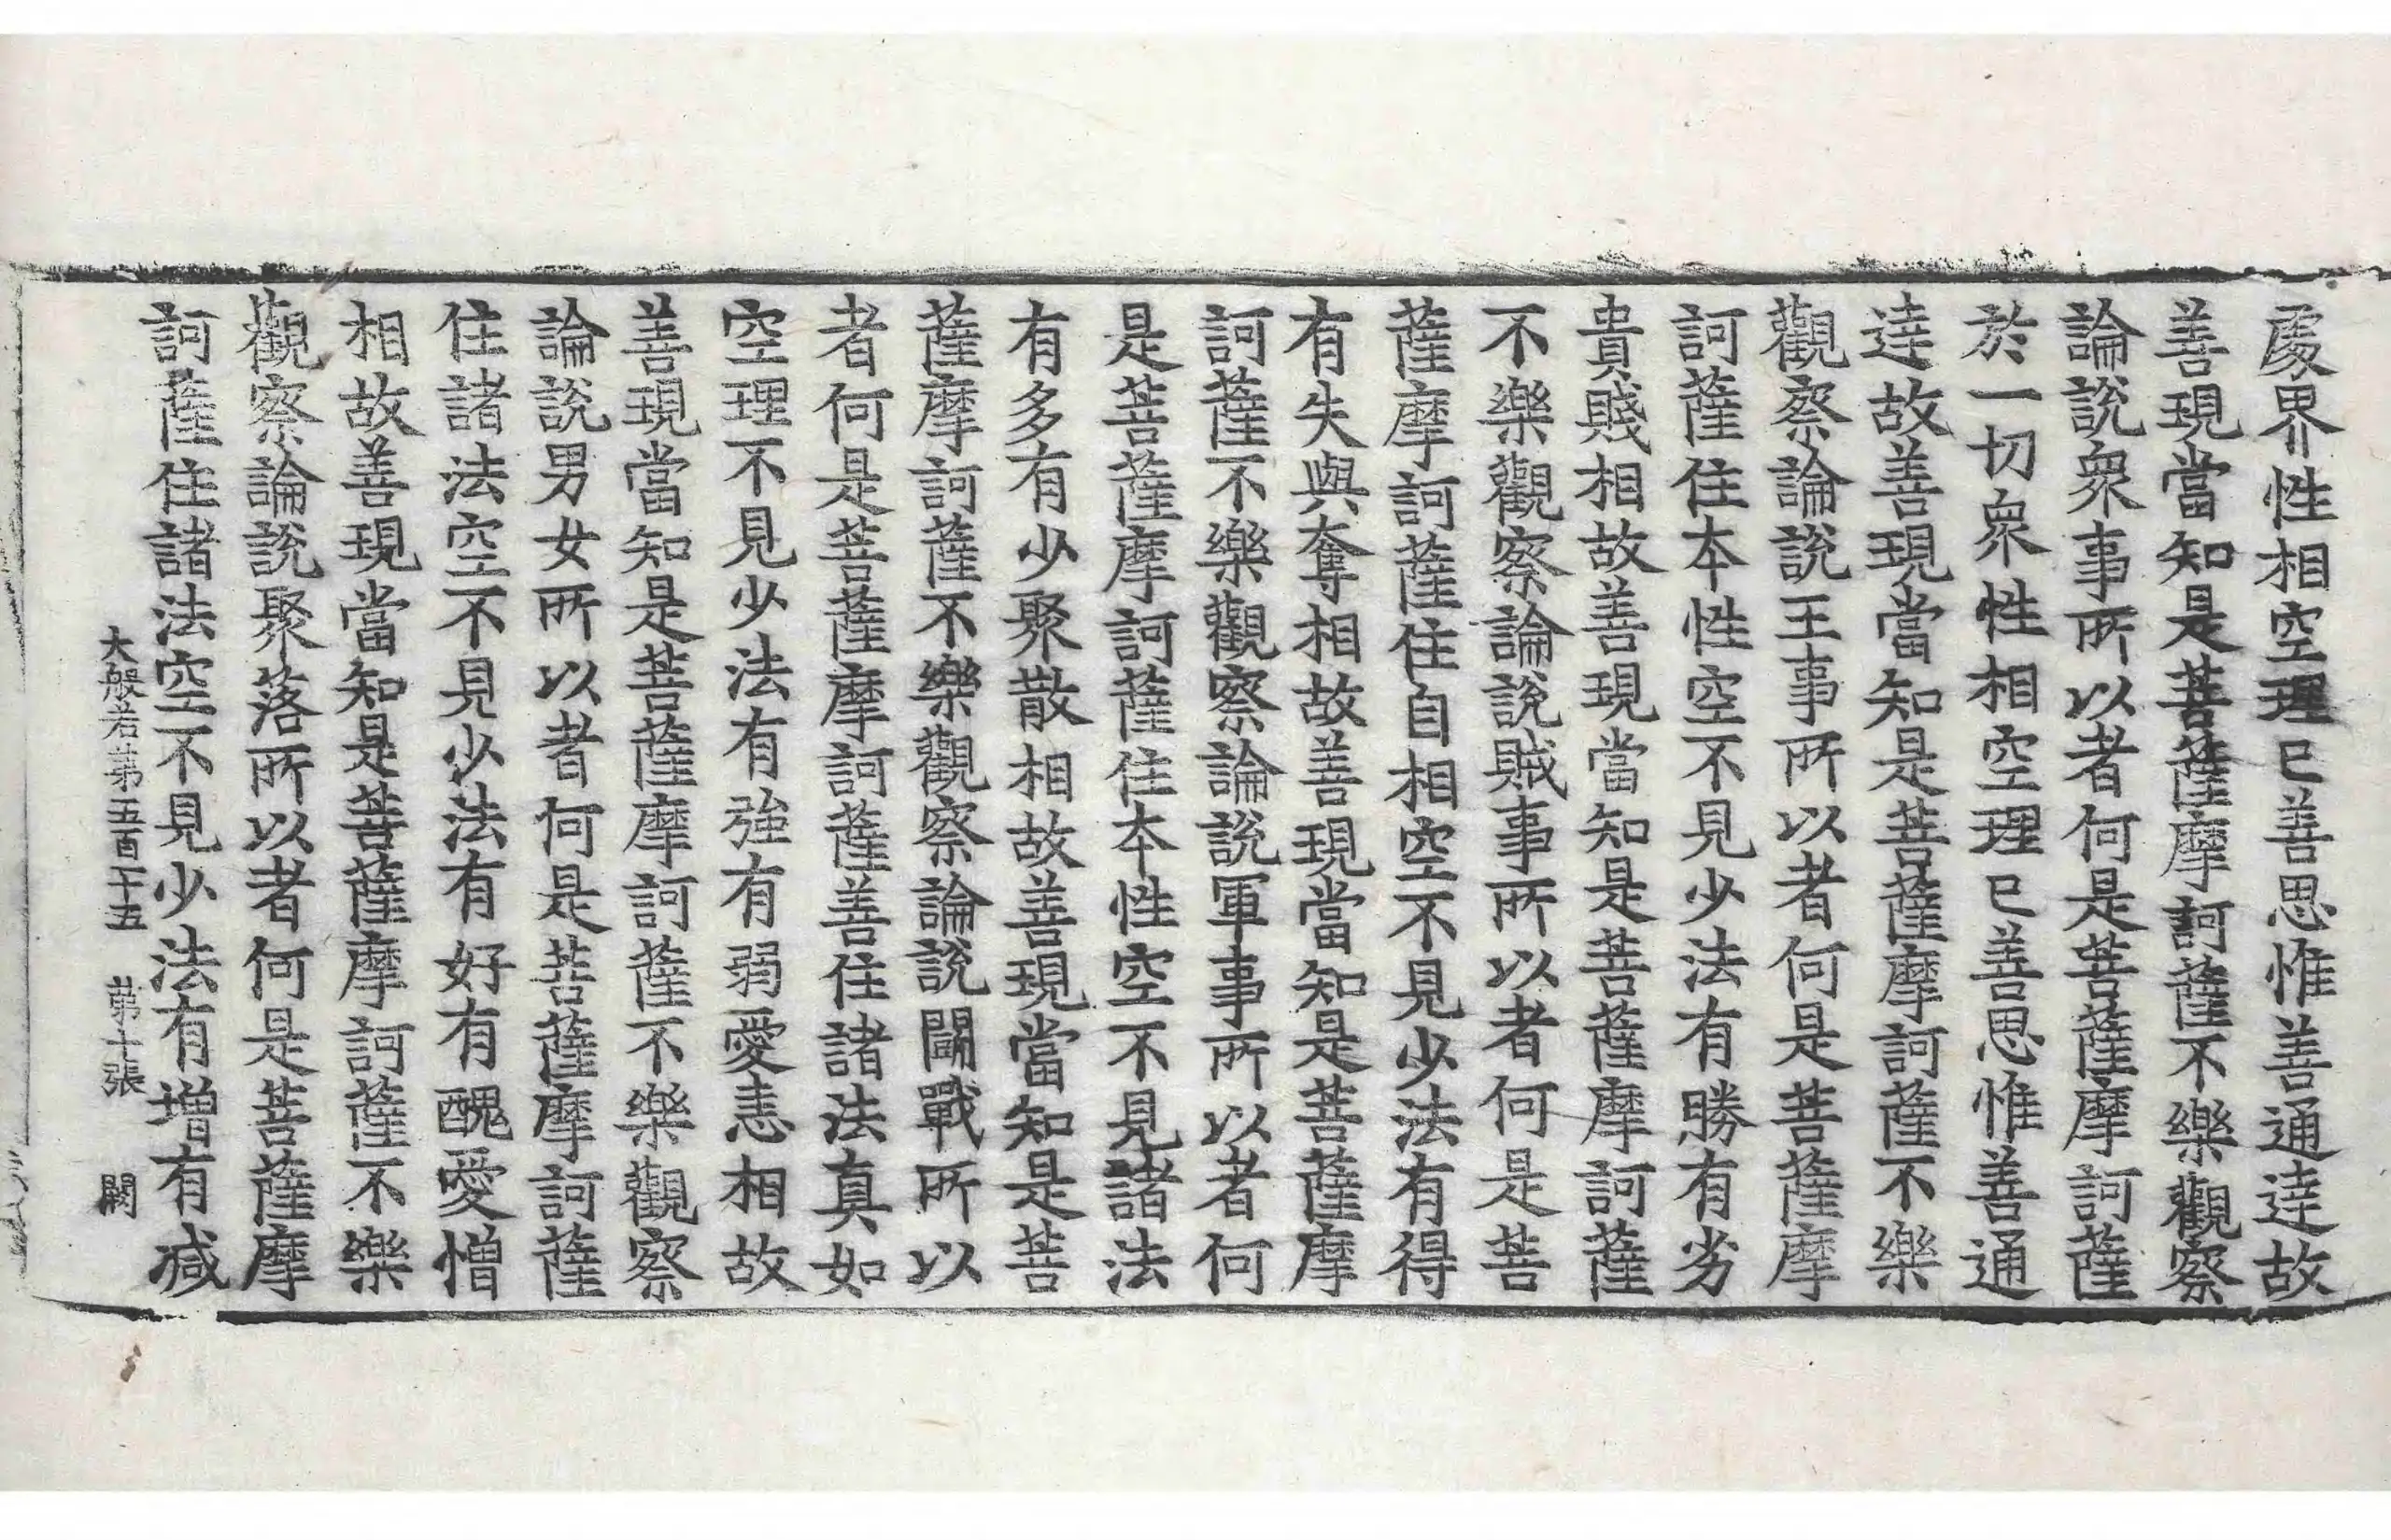 處界性相空理已善思惟善通達故
善現當知是菩薩摩訶薩不樂觀察
論說衆事所以者何是菩薩摩訶薩
於一切衆性相空理已善思惟善通
達故善現當知是菩薩摩訶薩不樂
觀察論說王事所以者何是菩薩摩
訶薩住本性空不見少法有勝有劣
貴賤相故善現當知是菩薩摩訶薩
不樂觀察論說賊事所以者何是菩
薩摩訶薩住自相空不見少法有得
有失與奪相故善現當知是菩薩摩
訶薩不樂觀察論說軍事所以者何
是菩薩摩訶薩住本性空不見諸法
有多有少聚散相故善現當知是菩
薩摩訶薩不樂觀察論說鬪戰所以
者何是菩薩摩訶薩善住諸法真如
空理不見少法有強有弱愛恚相故
善現當知是菩薩摩訶薩不樂觀察
論說男女所以者何是菩薩摩訶薩
住諸法空不見少法有好有醜愛憎
相故善現當知是菩薩摩訶薩不樂
觀察論說聚落所以者何是菩薩摩
訶薩住諸法空不見少法有增有減
大般若第五百十五 第十張 闕